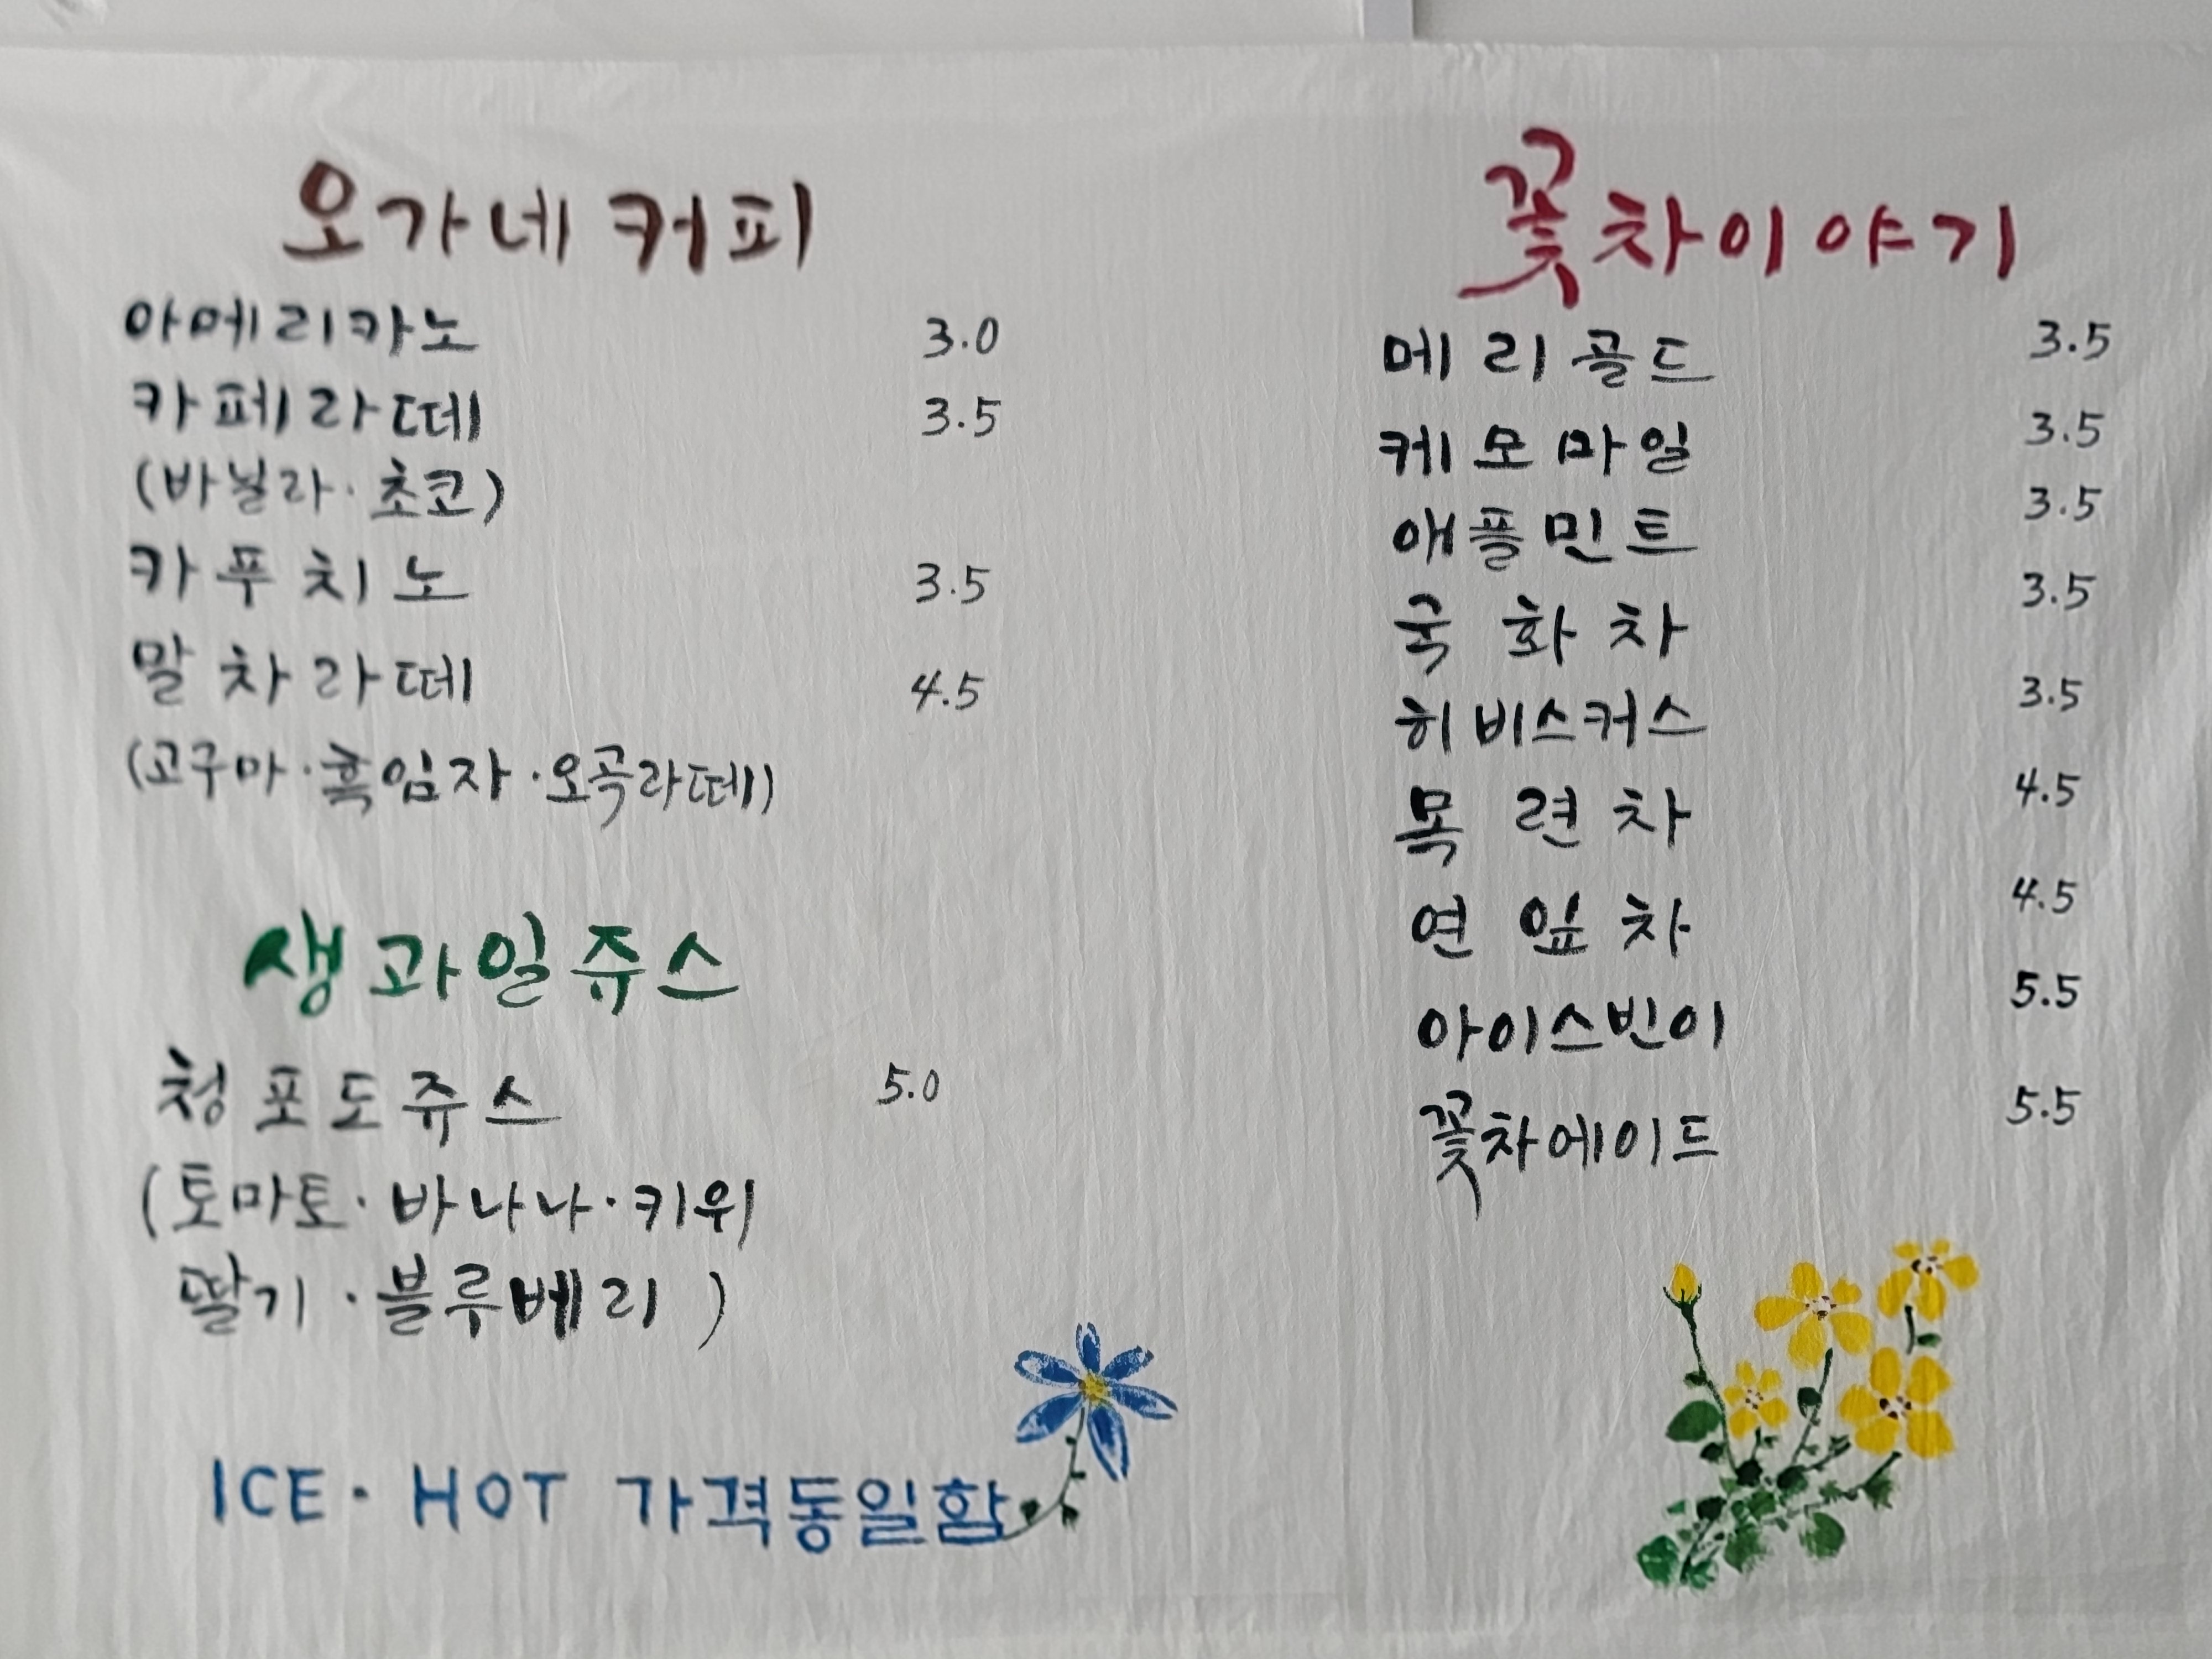 오가네 커피
아메리카노 3.0
카페라떼 3.5
(바닐라·초코)
카푸치노 3.5
말차라떼 4.5
(고구마·흑임자·오곡라떼)
생과일쥬스
청포도쥬스 5.0
(토마토·바나나·키위
딸기·블루베리)
ICE·HOT 가격동일함
꽃차이야기
메리골드 3.5
케모마일 3.5
애플민트 3.5
국화차 3.5
히비스커스 3.5
목련차 4.5
연잎차 4.5
아이스빈이 5.5
꽃차에이드 5.5